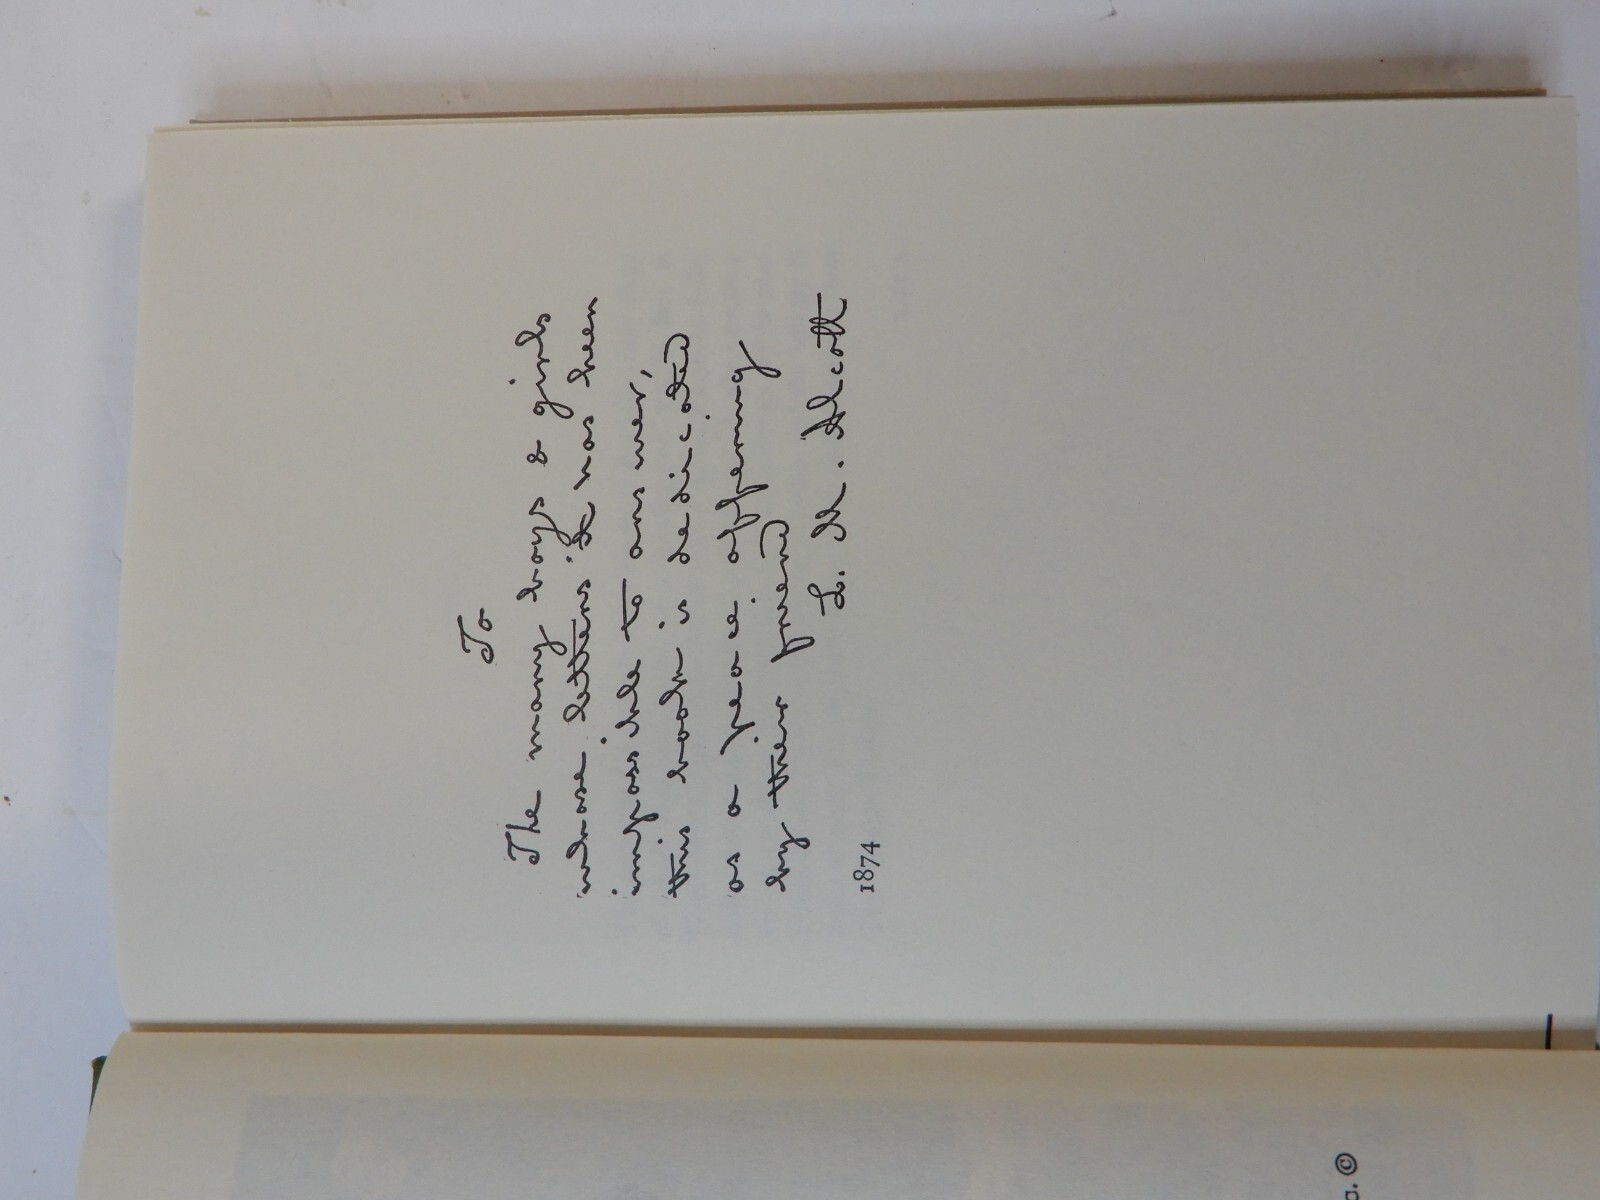 To
The many boys & girls
whose letters it has been
impossible to answer,
this book is dedicated
as a peace offering
by their friend
L. M. Alcott
1874
c. ©